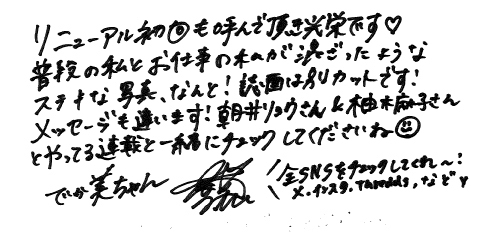 リニューアル初回も呼んで頂き光栄です♡
普段の私とお仕事の私が混ざったような
ステキな写真、なんと！誌面は別カットです！
メッセージも違います！朝井リョウさん&柚木麻子さん
とやってる連載と一緒にチェックしてくださいね☺
でか美ちゃん
全SNSをチェックしてくれ〜！
X、インスタ、Threads、などy